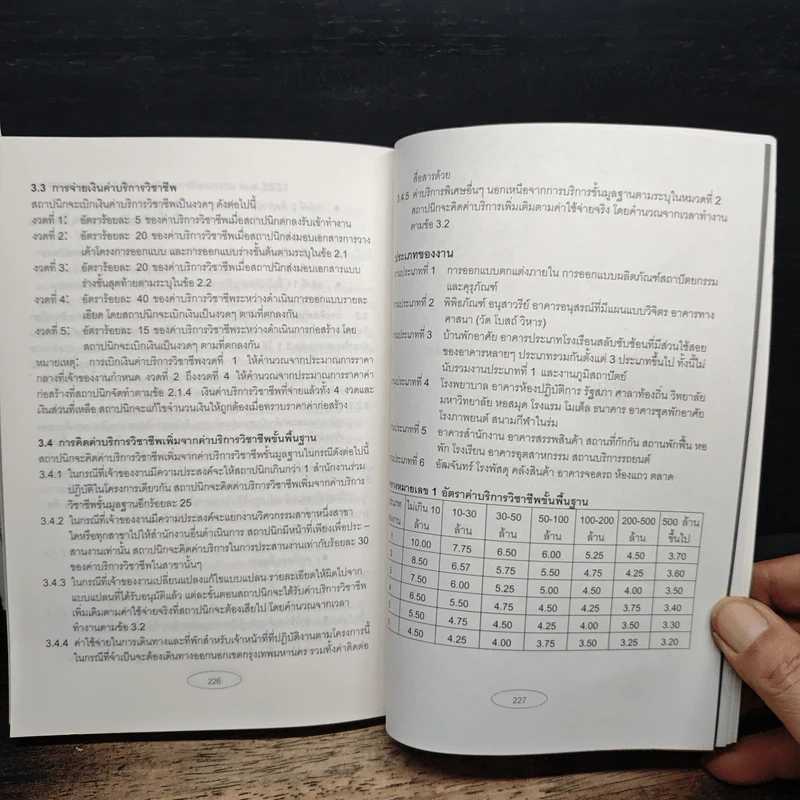 3.3 การจ่ายเงินค่าบริการวิชาชีพ
สถาปนิกจะเบิกเงินค่าบริการวิชาชีพเป็นงวดๆ ดังต่อไปนี้
งวดที่ 1: อัตราร้อยละ 5 ของค่าบริการวิชาชีพเมื่อสถาปนิกตกลงรับเข้าทำงาน
งวดที่ 2: อัตราร้อยละ 20 ของค่าบริการวิชาชีพเมื่อสถาปนิกส่งมอบเอกสารการวาง
เค้าโครงการออกแบบ และการออกแบบร่างขั้นต้นตามระบุในข้อ 2.1
งวดที่ 3: อัตราร้อยละ 20 ของค่าบริการวิชาชีพเมื่อสถาปนิกส่งมอบเอกสารแบบ
ร่างขั้นสุดท้ายตามระบุในข้อ 2.2
งวดที่ 4: อัตราร้อยละ 40 ของค่าบริการวิชาชีพระหว่างดำเนินการออกแบบรายละ
เอียด โดยสถาปนิกจะเบิกเงินเป็นงวดๆ ตามที่ตกลงกัน
งวดที่ 5: อัตราร้อยละ 15 ของค่าบริการวิชาชีพระหว่างดำเนินการก่อสร้าง โดย
สถาปนิกจะเบิกเงินเป็นงวดๆ ตามที่ตกลงกัน
หมายเหตุ: การเบิกเงินค่าบริการวิชาชีพงวดที่ 1 ให้คำนวณจากประมาณการราคา
กลางที่เจ้าของงานกำหนด งวดที่ 2 ถึงงวดที่ 4 ให้คำนวณจากประมาณการราคาค่า
ก่อสร้างที่สถาปนิกจัดทำตามข้อ 2.1.4 เงินค่าบริการวิชาชีพที่จ่ายแล้วทั้ง 4 งวดและ
เงินส่วนที่เหลือ สถาปนิกจะแก้ไขจำนวนเงินให้ถูกต้องเมื่อทราบราคาค่าก่อสร้าง
3.4 การคิดค่าบริการวิชาชีพเพิ่มจากค่าบริการวิชาชีพขั้นพื้นฐาน
สถาปนิกจะคิดค่าบริการวิชาชีพเพิ่มจากค่าบริการวิชาชีพขั้นมูลฐานในกรณีดังต่อไปนี้
3.4.1 ในกรณีที่เจ้าของงานมีความประสงค์จะให้สถาปนิกเกินกว่า 1 สำนักงานร่วม
ปฏิบัติในโครงการเดียวกัน สถาปนิกจะคิดค่าบริการวิชาชีพเพิ่มจากค่าบริการ
วิชาชีพขั้นมูลฐานอีกร้อยละ 25
3.4.2 ในกรณีที่เจ้าของงานมีความประสงค์จะแยกงานวิศวกรรมสาขาหนึ่งสาขา
ใดหรือทุกสาขาไปให้สำนักงานอื่นดำเนินการ สถาปนิกมีหน้าที่เพียงเพื่อประ –
สานงานเท่านั้น สถาปนิกจะคิดค่าบริการในการประสานงานเท่ากับร้อยละ 30
ของค่าบริการวิชาชีพในสาขานั้นๆ
3.4.3 ในกรณีที่เจ้าของงานเปลี่ยนแปลงแก้ไขแบบแปลน รายละเอียดให้ผิดไปจาก
แบบแปลนที่ได้รับอนุมัติแล้ว แต่ละขั้นตอนสถาปนิกจะได้รับค่าบริการวิชาชีพ
เพิ่มเติมตามค่าใช้จ่ายจริงที่สถาปนิกจะต้องเสียไป โดยคำนวณจากเวลา
ทำงานตามข้อ 3.2
3.4.4 ค่าใช้จ่ายในการเดินทางและที่พักสำหรับเจ้าหน้าที่ที่ปฏิบัติงานตามโครงการนี้
ในกรณีที่จำเป็นจะต้องเดินทางออกนอกเขตกรุงเทพมหานคร รวมทั้งค่าติดต่อ
226
สื่อสารด้วย
3.4.5 ค่าบริการพิเศษอื่นๆ นอกเหนือจากการบริการขั้นมูลฐานตามระบุในหมวดที่ 2
สถาปนิกจะคิดค่าบริการเพิ่มเติมตามค่าใช้จ่ายจริง โดยคำนวณจากเวลาทำงาน
ตามข้อ 3.2
ประเภทของงาน
งานประเภทที่ 1 การออกแบบตกแต่งภายใน การออกแบบผลิตภัณฑ์สถาปัตยกรรม
และครุภัณฑ์
งานประเภทที่ 2 พิพิธภัณฑ์ อนุสาวรีย์ อาคารอนุสรณ์ที่มีแผนแบบวิจิตร อาคารทาง
ศาสนา (วัด โบสถ์ วิหาร)
งานประเภทที่ 3 บ้านพักอาศัย อาคารประเภทโรงเรือนสลับซับซ้อนที่มีส่วนใช้สอย
ของอาคารหลายๆ ประเภทรวมกันตั้งแต่ 3 ประเภทขึ้นไป ทั้งนี้ไม่
นับรวมงานประเภทที่ 1 และงานภูมิสถาปัตย์
งานประเภทที่ 4 โรงพยาบาล อาคารห้องปฏิบัติการ รัฐสภา ศาลาท้องถิ่น วิทยาลัย
มหาวิทยาลัย หอสมุด โรงแรม โมเต็ล ธนาคาร อาคารชุดพักอาศัย
โรงภาพยนต์ สนามกีฬาในร่ม
งานประเภทที่ 5 อาคารสำนักงาน อาคารสรรพสินค้า สถานที่กักกัน สถานพักฟื้น หอ
พัก โรงเรียน อาคารอุตสาหกรรม สถานบริการรถยนต์
งานประเภทที่ 6 อัฒจันทร์ โรงพัสดุ คลังสินค้า อาคารจอดรถ ห้องแถว ตลาด
หมายเลข 1 อัตราค่าบริการวิชาชีพขั้นพื้นฐาน
ไม่เกิน 10 ล้าน 10-30 ล้าน 30-50 ล้าน 50-100 ล้าน 100-200 ล้าน 200-500 ล้าน 500 ล้าน ขึ้นไป
1 10.00 7.75 6.50 6.00 5.25 4.50 3.70
2 8.50 6.57 5.75 5.50 4.75 4.25 3.60
3 7.50 6.00 5.25 5.00 4.50 4.00 3.50
4 6.50 5.50 4.75 4.50 4.25 3.75 3.40
5 5.50 4.75 4.50 4.25 4.00 3.50 3.30
6 4.50 4.25 4.00 3.75 3.50 3.25 3.20
227